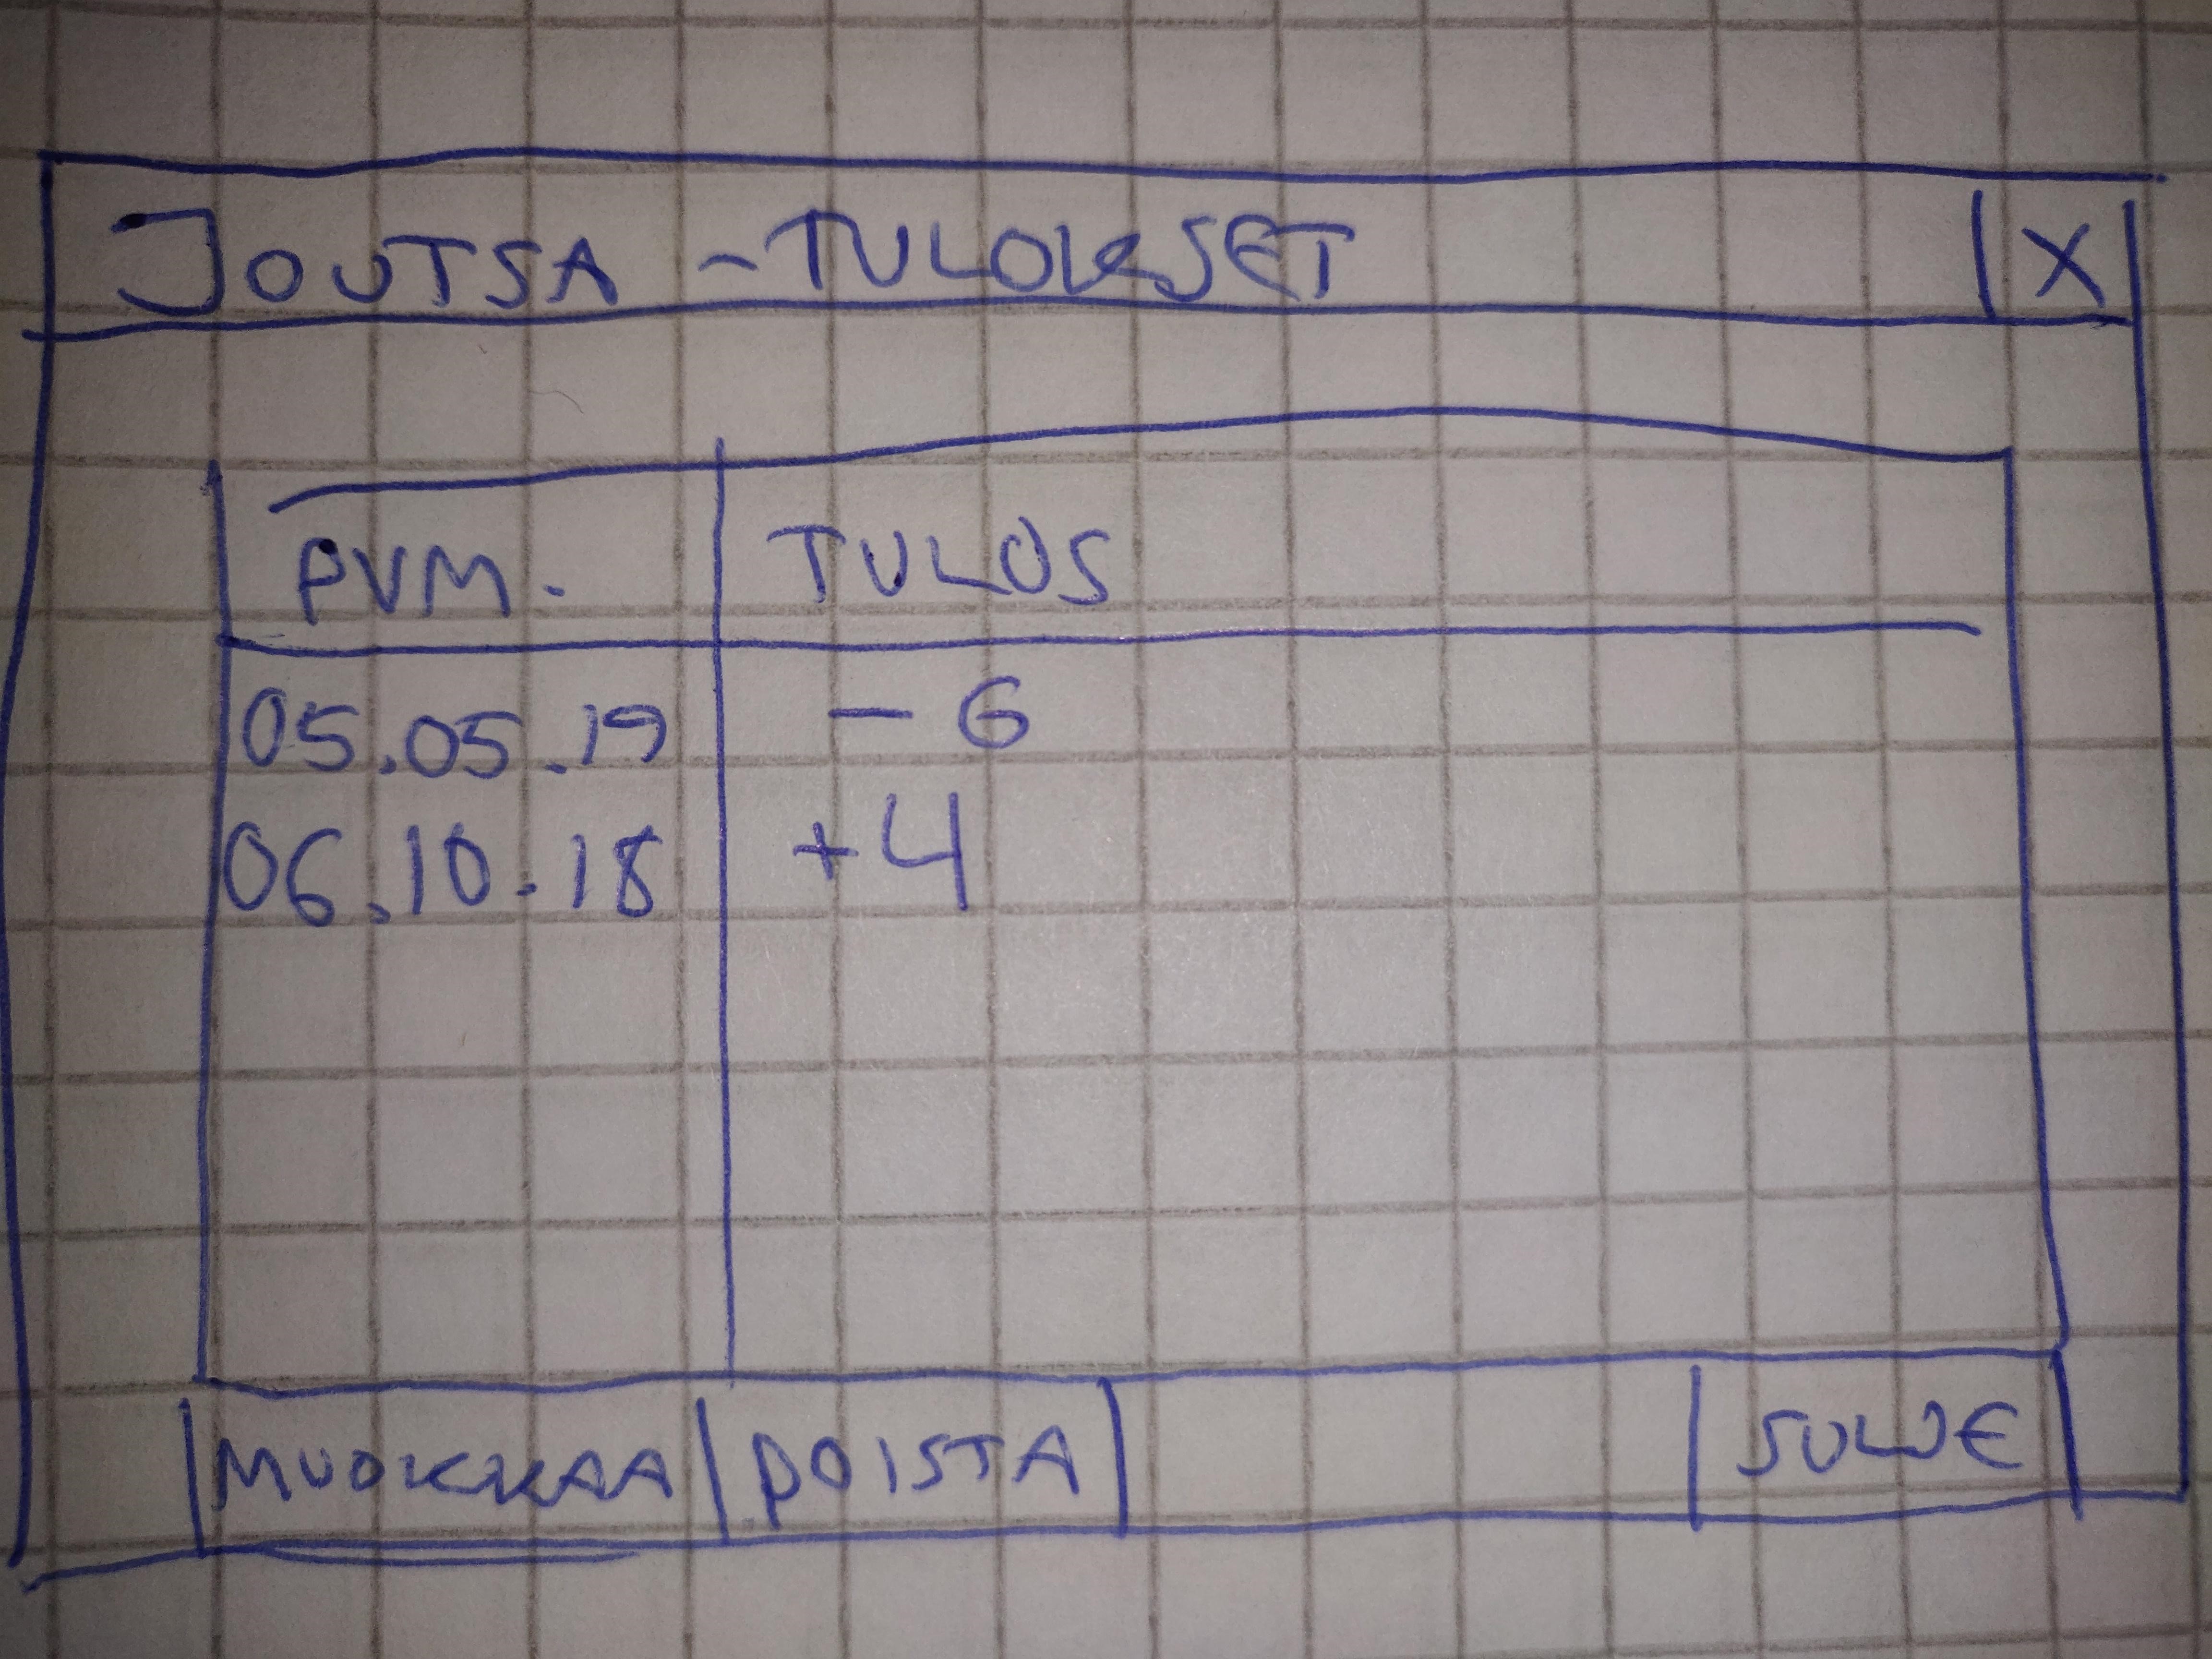 JOUTSA - TULOKSET X
PVM. TULOS
05.05.19 - 6
06.10.18 +4
MUOKKAA POISTA SULJE